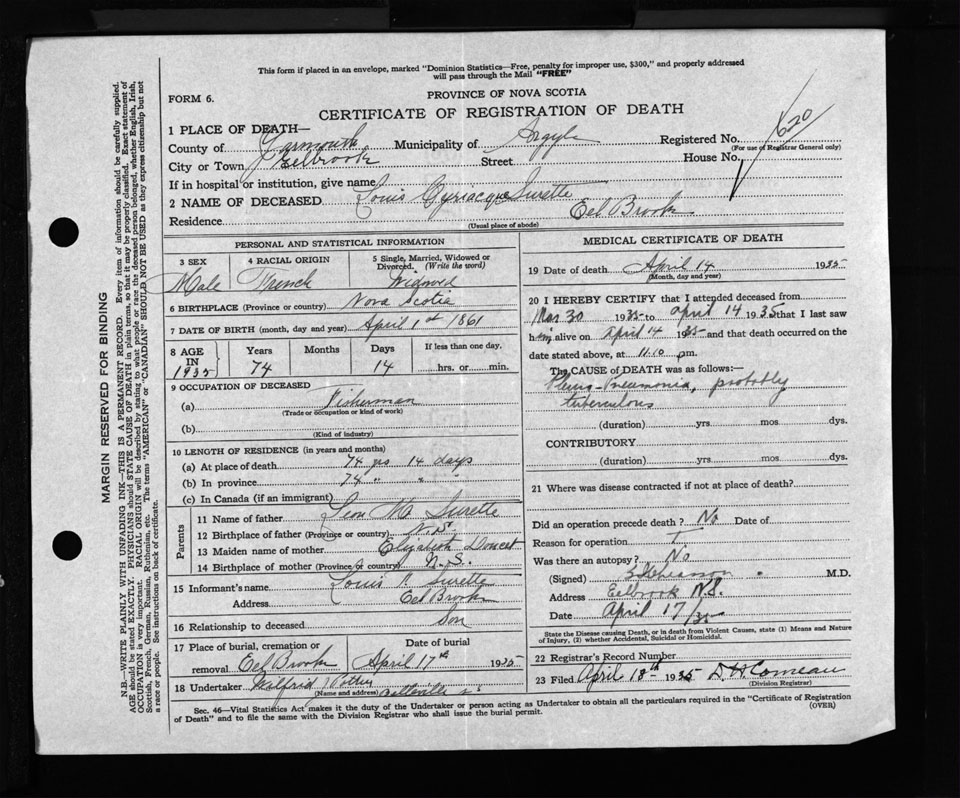 This form if placed in an envelope, marked "Dominion Statistics—Free, penalty for improper use, $300," and properly addressed
will pass through the Mail "FREE"
PROVINCE OF NOVA SCOTIA
FORM 6.
CERTIFICATE OF REGISTRATION OF DEATH
1 PLACE OF DEATH—
County of Yarmouth Municipality of Argyle Registered No. 620
(For use of Registrar General only)
City or Town Eelbrook Street House No.
If in hospital or institution, give name
2 NAME OF DECEASED Louis Cyriacque Surette
Residence Eel Brook
(Usual place of abode)
PERSONAL AND STATISTICAL INFORMATION
3 SEX 4 RACIAL ORIGIN 5 Single, Married, Widowed or
Divorced. (Write the word)
Male French Widowed
6 BIRTHPLACE (Province or country) Nova Scotia
7 DATE OF BIRTH (month, day and year) April 1st 1861
8 AGE Years Months Days If less than one day,
IN
1935 74 14 hrs. or min.
9 OCCUPATION OF DECEASED
(a) Fisherman
(Trade or occupation or kind of work)
(b)
(Kind of industry)
10 LENGTH OF RESIDENCE (in years and months)
(a) At place of death 74 yrs 14 days
(b) In province 74 " " "
(c) In Canada (if an immigrant)
Parents
11 Name of father Leon M. Surette
12 Birthplace of father (Province or country) N.S.
13 Maiden name of mother Elizabeth Doucet
14 Birthplace of mother (Province or country) N.S.
15 Informant's name Louis Surette
Address Eel Brook
16 Relationship to deceased Son
17 Place of burial, cremation or Date of burial
removal Eel Brook April 17th 1935
18 Undertaker Wilfrid Pottier
(Name and address) Belleville
MEDICAL CERTIFICATE OF DEATH
19 Date of death April 14 1935
(Month, day and year)
20 I HEREBY CERTIFY that I attended deceased from
Mar 30 1935 to April 14 1935 that I last saw
him alive on April 14 1935 and that death occurred on the
date stated above, at 11.10 p.m.
The CAUSE of DEATH was as follows:—
Pleuro-Pneumonia, probably
tuberculous
(duration) yrs mos dys.
CONTRIBUTORY
(duration) yrs mos dys.
21 Where was disease contracted if not at place of death?
Did an operation precede death? No Date of
Reason for operation
Was there an autopsy? No
(Signed) M.D.
Address Eelbrook N.S.
Date April 17/35
State the Disease causing Death, or in death from Violent Causes, state (1) Means and Nature
of Injury, (2) whether Accidental, Suicidal or Homicidal.
22 Registrar's Record Number
23 Filed April 18th 1935 D.H. Comeau
(Division Registrar)
Sec. 46—Vital Statistics Act makes it the duty of the Undertaker or person acting as Undertaker to obtain all the particulars required in the "Certificate of Registration
of Death" and to file the same with the Division Registrar who shall issue the burial permit.
(OVER)
MARGIN RESERVED FOR BINDING
N.B.—WRITE PLAINLY WITH UNFADING INK—THIS IS A PERMANENT RECORD. Every item of information should be carefully supplied.
AGE should be stated EXACTLY. PHYSICIANS should STATE CAUSE OF DEATH in plain terms, so that it may be properly classified. Exact statement of
OCCUPATION is very important. RACIAL ORIGIN will be described by stating to what people or race the deceased person belonged, whether English, Irish,
Scottish, French, German, Russian, Ruthenian, etc. The terms "AMERICAN" or "CANADIAN" SHOULD NOT BE USED as they express citizenship but not
a race or people. See instructions on back of certificate.